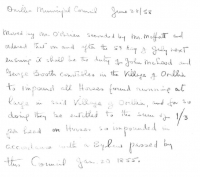 Orillia Municipal Council June 28/56
Moved by Mr. O'Brien seconded by Mr. Moffatt and
ordered that on and after the 1st day of July next
ensuing it shall be the duty for John McLeod and
George Booth Constables in the Village of Orillia
to impound all Horses found running at
large in said Village of Orillia, and for so
doing they be entitled to the sum of 1/3
per head on Horses so impounded in
accordance with a Bylaw passed by
this Council Jan 09 1855.